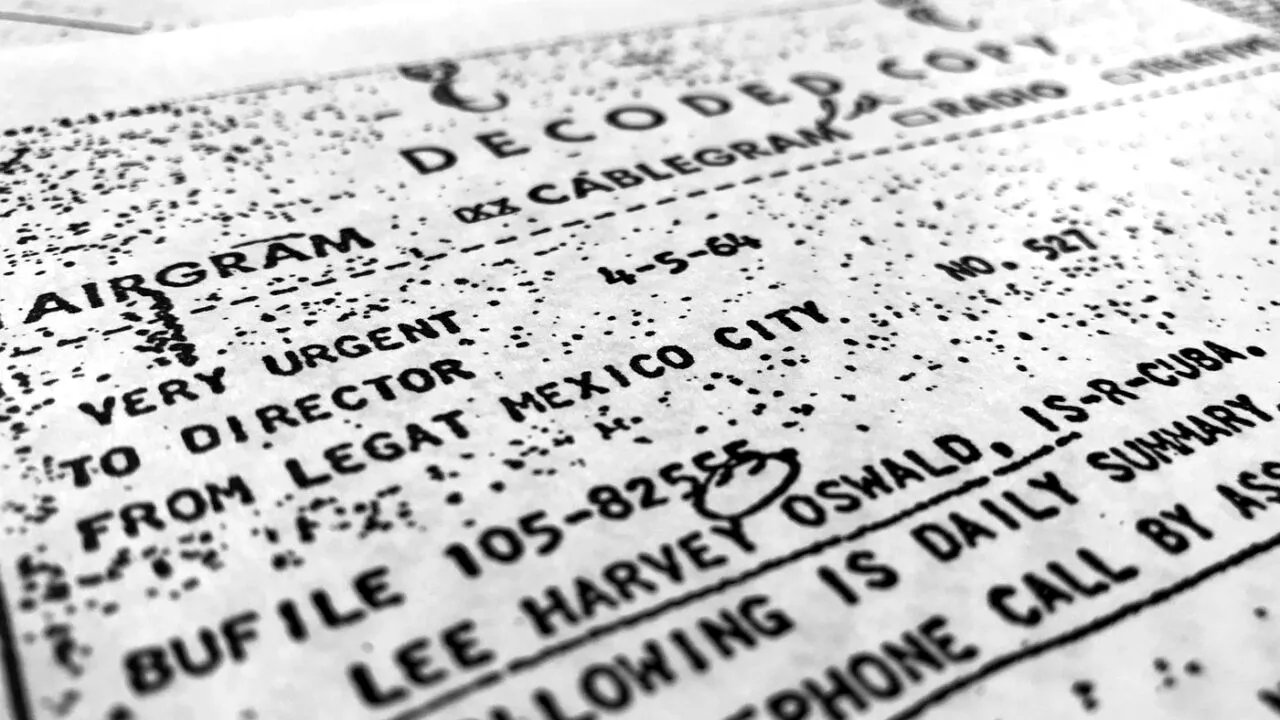 DECODED COPY
AIRGRAM XX CABLEGRAM RADIO
VERY URGENT 4-5-64 NO. 527
TO DIRECTOR
FROM LEGAT MEXICO CITY
BUFILE 105-82555
LEE HARVEY OSWALD, IS-R-CUBA.
LLOWING IS DAILY SUMMARY.
EPHONE CALL BY ASS